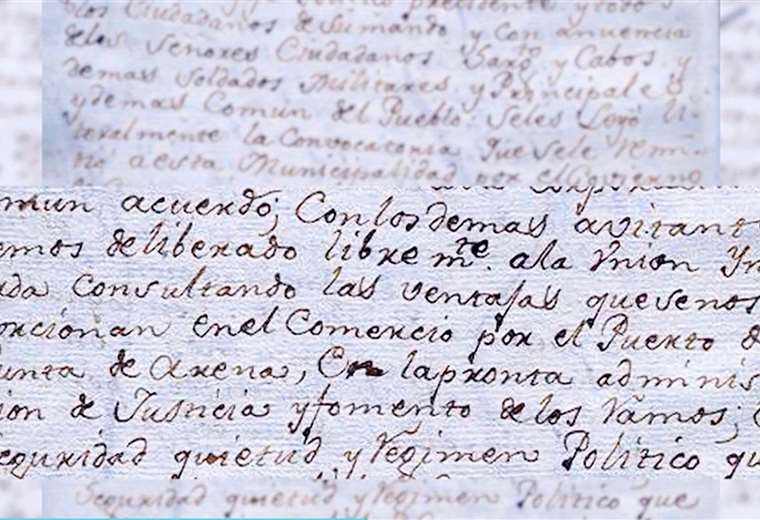 los Ciudadanos de sumando y con anuencia
delos Señores Ciudadanos Sargto y Cabos y
demas Soldados Militares y Principales
ydemas Comun del Pueblo seles Leyó li-
teralmente la Convocatoria que sele remi-
tió aesta Municipalidad por el Govierno
mun acuerdo; Conlosdemas avitant
emos deliberado libremte. ala Vnion Yn
ada Consultando las ventajas quesenos
orcionan enel Comercio por el Puerto d
unta de Arena, En lapronta adminis
ion de Justicia yfomento delos Ramos;
eguridad quietud y Regimen Politico qu
Seguridad quietud y Regimen Politico que